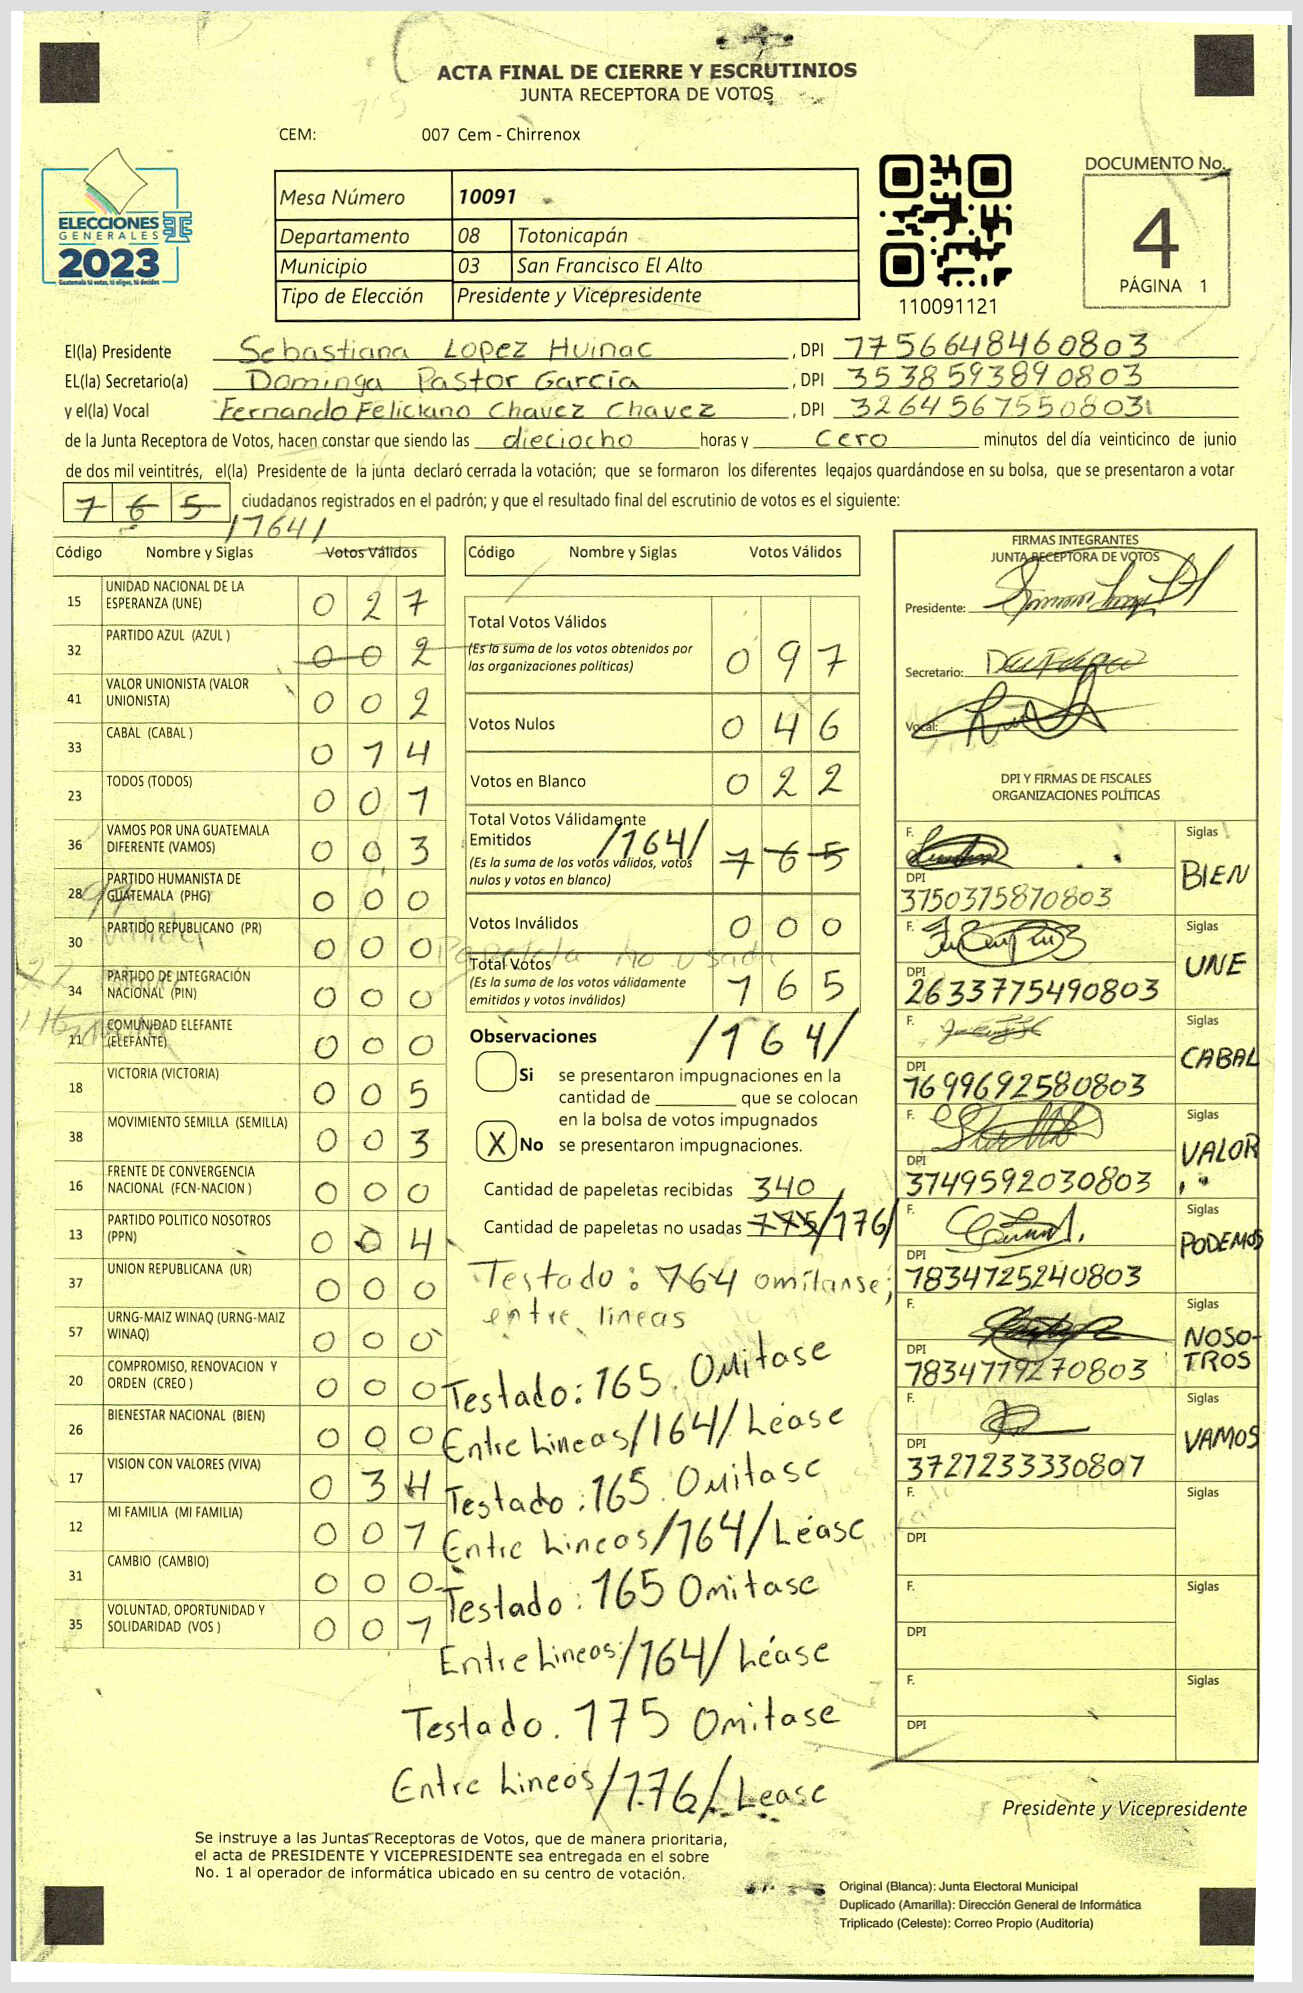 ACTA FINAL DE CIERRE Y ESCRUTINIOS
JUNTA RECEPTORA DE VOTOS
CEM: 007 Cem - Chirrenox
ELECCIONES
GENERALES
2023
Guatemala tú votas, tú eliges, tú decides
Mesa Número 10091
Departamento 08 Totonicapán
Municipio 03 San Francisco El Alto
Tipo de Elección Presidente y Vicepresidente
110091121
DOCUMENTO No.
4
PÁGINA 1
El(la) Presidente Sebastiana Lopez Huinac, DPI 1756648460803
EL(la) Secretario(a) Dominga Pastor García, DPI 3538593890803
y el(la) Vocal Fernando Feliciano Chavez Chavez, DPI 3264567550803
de la Junta Receptora de Votos, hacen constar que siendo las dieciocho horas y cero minutos del día veinticinco de junio
de dos mil veintitrés, el(la) Presidente de la junta declaró cerrada la votación; que se formaron los diferentes legajos guardándose en su bolsa, que se presentaron a votar
165 ciudadanos registrados en el padrón; y que el resultado final del escrutinio de votos es el siguiente:
/164/
Código Nombre y Siglas Votos Válidos
15 UNIDAD NACIONAL DE LA ESPERANZA (UNE) 0 2 7
32 PARTIDO AZUL (AZUL ) 0 0 2
41 VALOR UNIONISTA (VALOR UNIONISTA) 0 0 2
33 CABAL (CABAL ) 0 1 4
23 TODOS (TODOS) 0 0 1
36 VAMOS POR UNA GUATEMALA DIFERENTE (VAMOS) 0 0 3
28 PARTIDO HUMANISTA DE GUATEMALA (PHG) 0 0 0
30 PARTIDO REPUBLICANO (PR) 0 0 0
34 PARTIDO DE INTEGRACIÓN NACIONAL (PIN) 0 0 0
11 COMUNIDAD ELEFANTE (ELEFANTE) 0 0 0
18 VICTORIA (VICTORIA) 0 0 5
38 MOVIMIENTO SEMILLA (SEMILLA) 0 0 3
16 FRENTE DE CONVERGENCIA NACIONAL (FCN-NACION ) 0 0 0
13 PARTIDO POLITICO NOSOTROS (PPN) 0 0 4
37 UNION REPUBLICANA (UR) 0 0 0
57 URNG-MAIZ WINAQ (URNG-MAIZ WINAQ) 0 0 0
20 COMPROMISO, RENOVACION Y ORDEN (CREO ) 0 0 0
26 BIENESTAR NACIONAL (BIEN) 0 0 0
17 VISION CON VALORES (VIVA) 0 3 4
12 MI FAMILIA (MI FAMILIA) 0 0 1
31 CAMBIO (CAMBIO) 0 0 0
35 VOLUNTAD, OPORTUNIDAD Y SOLIDARIDAD (VOS ) 0 0 1
Código Nombre y Siglas Votos Válidos
Total Votos Válidos 0 9 7
(Es la suma de los votos obtenidos por
las organizaciones políticas)
Votos Nulos 0 4 6
Votos en Blanco 0 2 2
Total Votos Válidamente
Emitidos /164/ 1 6 5
(Es la suma de los votos válidos, votos
nulos y votos en blanco)
Votos Inválidos 0 0 0
Papeleta no usada
Total Votos 1 6 5
(Es la suma de los votos válidamente
emitidos y votos inválidos)
/164/
Observaciones
Si se presentaron impugnaciones en la
cantidad de ________ que se colocan
en la bolsa de votos impugnados
X No se presentaron impugnaciones.
Cantidad de papeletas recibidas 340
Cantidad de papeletas no usadas 175 /176/
Testado: 164 omítanse;
entre lineas
Testado: 165. Omitase
Entre Lineas /164/ Léase
Testado: 165. Omitase
Entre Lineas /164/ Léase
Testado: 165 Omitase
Entre Lineas /164/ Léase
Testado. 175 Omitase
Entre Lineas /176/. Lease
FIRMAS INTEGRANTES
JUNTA RECEPTORA DE VOTOS
Presidente:
Secretario:
Vocal:
DPI Y FIRMAS DE FISCALES
ORGANIZACIONES POLÍTICAS
F. Siglas
DPI 3750375870803 BIEN
F. Siglas
DPI 2633775490803 UNE
F. Siglas
DPI 1699692580803 CABAL
F. Siglas
DPI 3749592030803 VALOR
F. Siglas
DPI 1834725240803 PODEMOS
F. Siglas
DPI 1834719270803 NOSOTROS
F. Siglas
DPI 3727233330801 VAMOS
F. Siglas
DPI
F. Siglas
DPI
F. Siglas
DPI
Presidente y Vicepresidente
Se instruye a las Juntas Receptoras de Votos, que de manera prioritaria,
el acta de PRESIDENTE Y VICEPRESIDENTE sea entregada en el sobre
No. 1 al operador de informática ubicado en su centro de votación.
Original (Blanca): Junta Electoral Municipal
Duplicado (Amarilla): Dirección General de Informática
Triplicado (Celeste): Correo Propio (Auditoria)